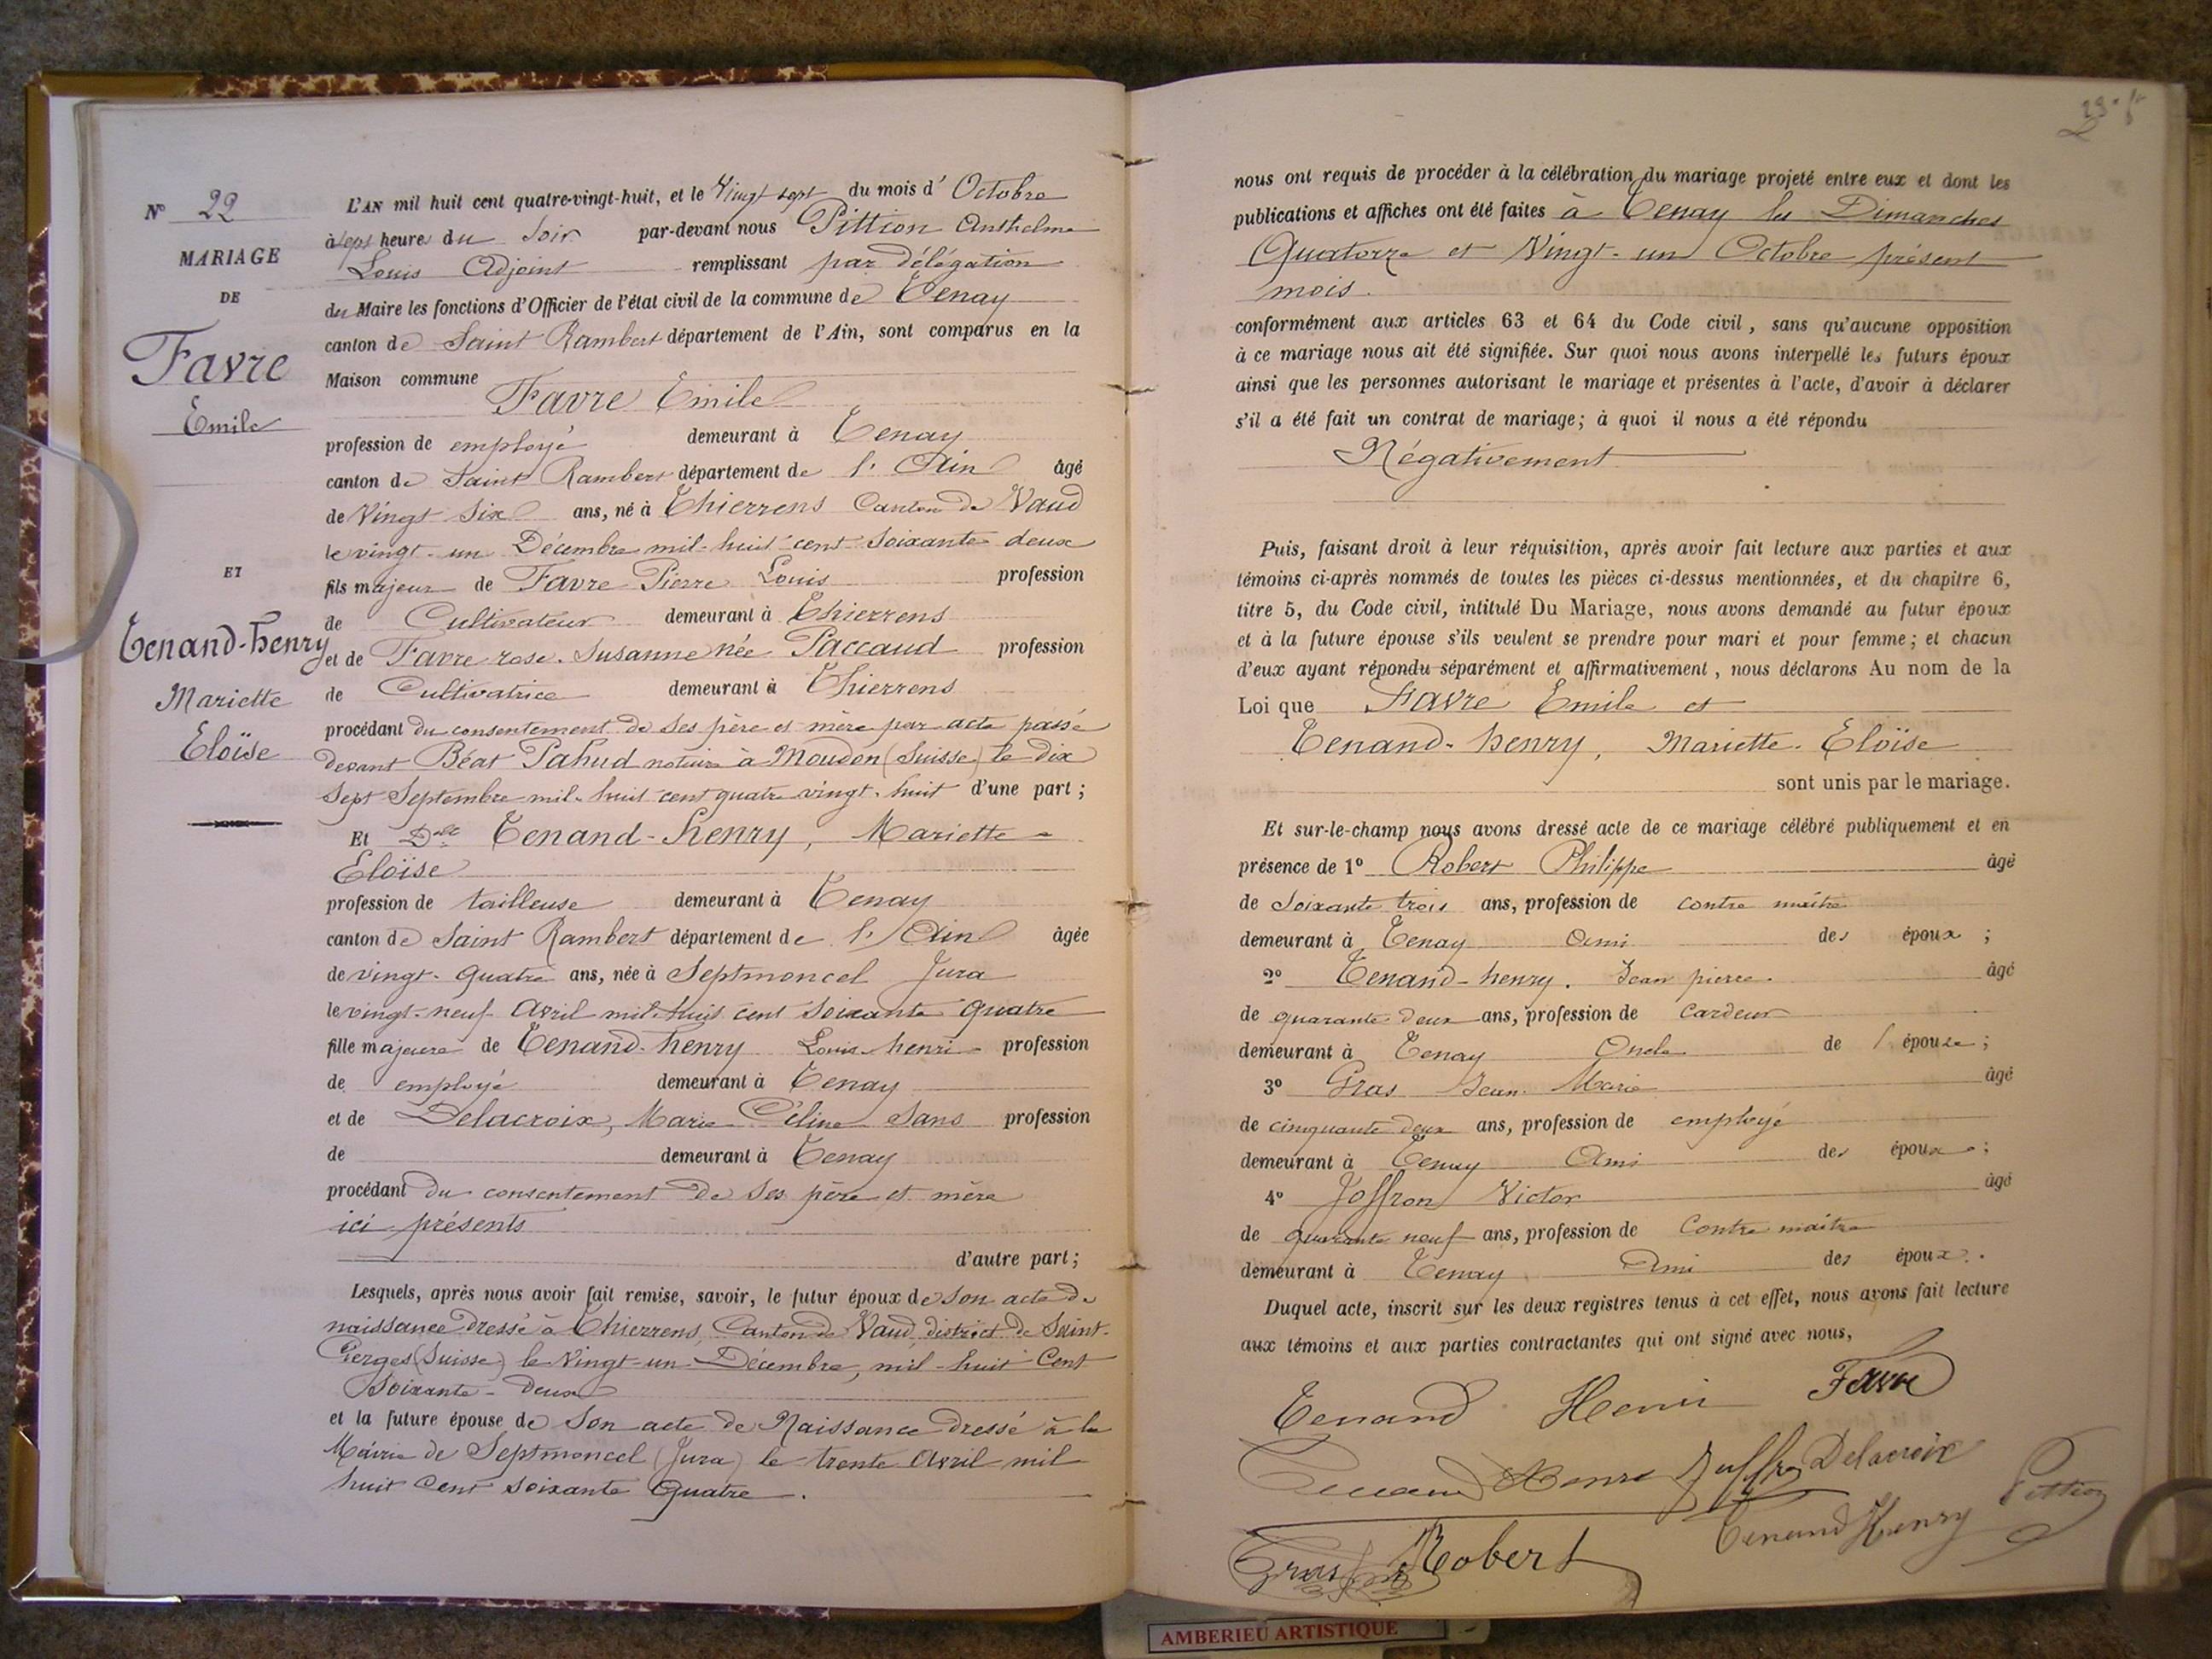 Nº 22
MARIAGE
DE
Favre
Emile
ET
Tenand-henry
Mariette
Eloïse
L'AN mil huit cent quatre-vingt-huit, et le Vingt sept du mois d' Octobre
à sept heures du Soir par-devant nous Pittion Anthelme
Louis Adjoint remplissant par délégation
du Maire les fonctions d'Officier de l'état civil de la commune de Tenay
canton de Saint Rambert département de l'Ain, sont comparus en la
Maison commune
Favre Emile
profession de employé demeurant à Tenay
canton de Saint Rambert département de l'Ain âgé
de Vingt Six ans, né à Thierrens Canton de Vaud
le vingt-un Décembre mil-huit cent Soixante deux
fils majeur de Favre Pierre Louis profession
de Cultivateur demeurant à Thierrens
et de Favre rose. Susanne née Paccaud profession
de Cultivatrice demeurant à Thierrens
procédant du consentement de ses père et mère par acte passé
devant Béat Pahud notaire à Moudon (Suisse) le dix
Sept Septembre mil-huit cent quatre vingt-huit d'une part ;
Et Dlle Tenand-henry, Mariette
Eloïse
profession de tailleuse demeurant à Tenay
canton de Saint Rambert département de l'Ain âgée
de vingt-quatre ans, née à Septmoncel Jura
le vingt-neuf Avril mil-huit cent soixante quatre
fille majeure de Tenand-henry Louis-henri profession
de employé demeurant à Tenay
et de Delacroix, Marie Céline Sans profession
de demeurant à Tenay
procédant du consentement de ses père et mère
ici présents
d'autre part ;
Lesquels, après nous avoir fait remise, savoir, le futur époux de son acte de
naissance dressé à Thierrens, Canton de Vaud, district de Saint-
Cierges (Suisse) le Vingt-un Décembre, mil-huit Cent
Soixante-deux
et la future épouse de Son acte de Naissance dressé à la
Mairie de Septmoncel (Jura) le trente Avril mil
huit Cent soixante Quatre.
nous ont requis de procéder à la célébration du mariage projeté entre eux et dont les
publications et affiches ont été faites à Tenay les Dimanches
Quatorze et Vingt-un Octobre présent
mois.
conformément aux articles 63 et 64 du Code civil, sans qu'aucune opposition
à ce mariage nous ait été signifiée. Sur quoi nous avons interpellé les futurs époux
ainsi que les personnes autorisant le mariage et présentes à l'acte, d'avoir à déclarer
s'il a été fait un contrat de mariage ; à quoi il nous a été répondu
Négativement
Puis, faisant droit à leur réquisition, après avoir fait lecture aux parties et aux
témoins ci-après nommés de toutes les pièces ci-dessus mentionnées, et du chapitre 6,
titre 5, du Code civil, intitulé Du Mariage, nous avons demandé au futur époux
et à la future épouse s'ils veulent se prendre pour mari et pour femme ; et chacun
d'eux ayant répondu séparément et affirmativement, nous déclarons Au nom de la
Loi que Favre Emile et
Tenand-henry, Mariette-Eloïse
sont unis par le mariage.
Et sur-le-champ nous avons dressé acte de ce mariage célébré publiquement et en
présence de 1º Robert Philippe âgé
de Soixante trois ans, profession de contre maître
demeurant à Tenay Ami des époux ;
2º Tenand-henry. Jean pierre âgé
de quarante-deux ans, profession de Cardeur
demeurant à Tenay Oncle de l'épouse ;
3º Gras Jean Marie âgé
de cinquante deux ans, profession de employé
demeurant à Tenay Ami des époux ;
4º Joffron Victor âgé
de quarante neuf ans, profession de Contre maître
demeurant à Tenay Ami des époux.
Duquel acte, inscrit sur les deux registres tenus à cet effet, nous avons fait lecture
aux témoins et aux parties contractantes qui ont signé avec nous,
Tenand Henri Favre
Tenand Henri Joffron Delacroix
Tenand Henry Pittion
Gras Robert
AMBERIEU ARTISTIQUE